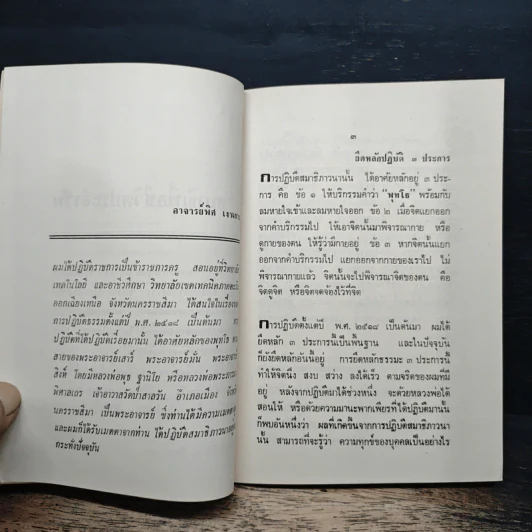 อาจารย์พิศ
ผมได้ปฏิบัติราชการเป็นข้าราชการครู สอนอยู่ที่วิทยาลัย
เทคโนโลยี และอาชีวศึกษา วิทยาลัยเขตเทคนิคภาคตะวัน
ออกเฉียงเหนือ จังหวัดนครราชสีมา ได้สนใจในเรื่อง
การปฏิบัติธรรมตั้งแต่ปี พ.ศ. ๒๕๑๘ เป็นต้นมา
ปฏิบัติที่ได้ปฏิบัติเรื่อยมานั้น ได้อาศัยหลักของพุทโธ
สายของพระอาจารย์เสาร์ พระอาจารย์มั่น
สิงห์ โดยมีหลวงพ่อพุธ ฐานิโย หรือหลวงพ่อพระ
พิศาลเถร เจ้าอาวาสวัดป่าสาลวัน อำเภอเมือง
นครราชสีมา เป็นพระอาจารย์ ซึ่งท่านได้มีความเมตตา
และผมก็ได้รับเมตตาจากท่าน ได้ปฏิบัติสมาธิภาวนา
กระทั่งปัจจุบัน
๓
ยึดหลักปฏิบัติ ๓ ประการ
การปฏิบัติสมาธิภาวนานั้น ได้อาศัยหลักอยู่ ๓ ประ-
การ คือ ข้อ ๑ ให้บริกรรมคำว่า "พุทโธ" พร้อมกับ
ลมหายใจเข้าและลมหายใจออก ข้อ ๒ เมื่อจิตแยกออก
จากคำบริกรรมไป ให้เอาจิตนั้นมาพิจารณากาย หรือ
ดูกายของตน ให้รู้ว่ามีกายอยู่ ข้อ ๓ หากจิตนั้นแยก
ออกจากคำบริกรรมไป แยกออกจากกายของเราไป ไม่
พิจารณากายแล้ว จิตนั้นจะไปพิจารณาจิตของตน คือ
จิตดูจิต หรือจิตจดจ้องไว้ที่จิต
การปฏิบัติตั้งแต่ปี พ.ศ. ๒๕๑๘ เป็นต้นมา ผมได้
ยึดหลัก ๓ ประการนี้เป็นพื้นฐาน และในปัจจุบัน
ก็ยังยึดหลักอันนี้อยู่ การยึดหลักธรรมะ ๓ ประการนี้
ทำให้จิตนิ่ง สงบ สว่าง ลงได้เร็ว ตามจริตของผมที่มี
อยู่ หลังจากปฏิบัติมาได้ช่วงหนึ่ง จะด้วยหลวงพ่อได้
สอนให้ หรือด้วยความมานะพากเพียรที่ได้ปฏิบัติมานั้น
ก็พบอันหนึ่งว่า ผลที่เกิดขึ้นจากการปฏิบัติสมาธิภาวนา
นั้น สามารถที่จะรู้ว่า ความทุกข์ของบุคคลเป็นอย่างไร